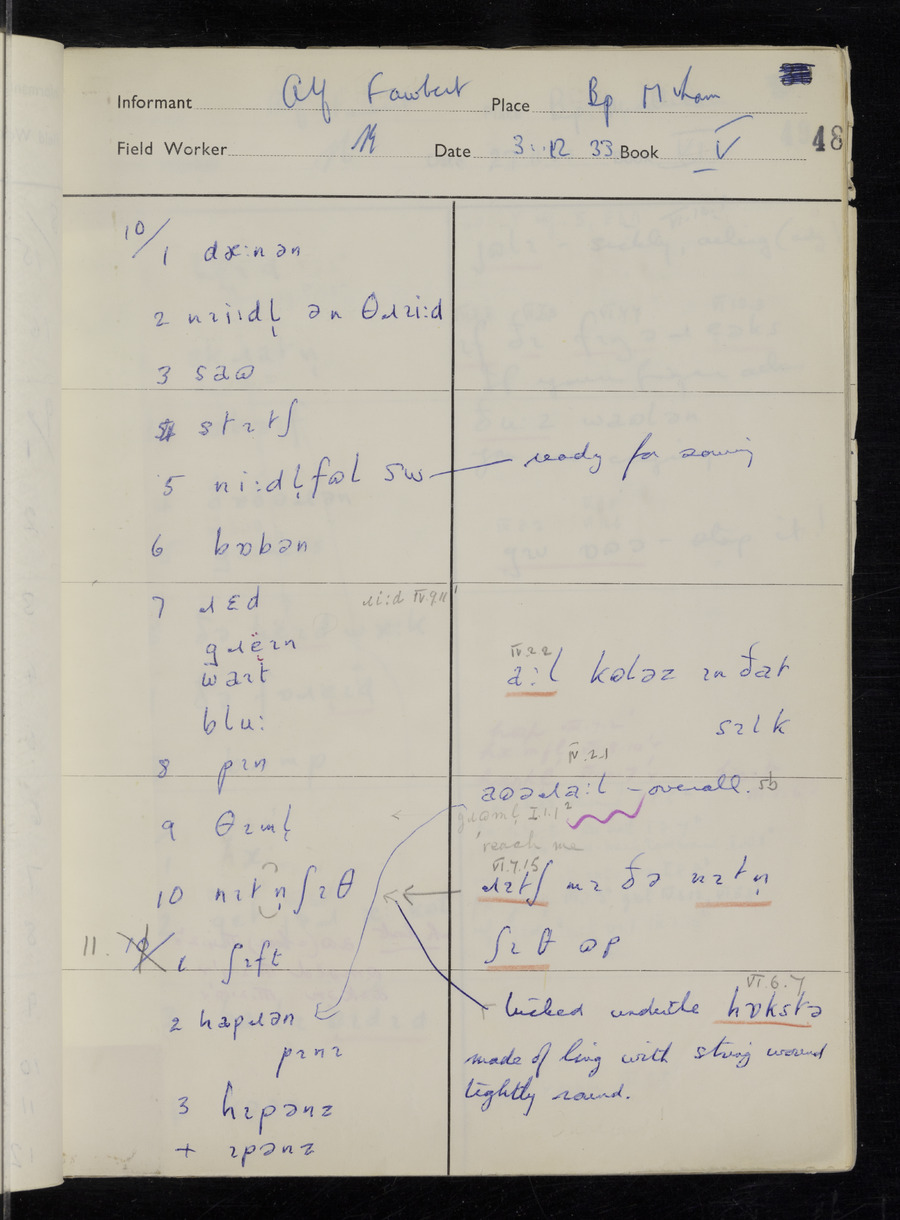 Informant Alf Fawbert Place Bp M'ham
Field Worker Date 3.12 33 Book V 48
10/
1 dæ:nən
2 nɪi:dl̩ ən θɹɪi:d
3 saω
stɪtʃ
5 ni:dl̩fωl ready for sewing
6 bɒbən
7 ɹɛd ɹi:d IV.9.11
gɹëɪn
waɪt
blu:
8 pɪn
9 θɪml̩
10 nɪtn̩ ʃɪθ
11.
1 ʃɪft
2 hapɹən
pɪnɪ
3 hɪpənz
+ ɪpənz
IV.2.2
a:l kωləz ɪn ðat
sɪlk
IV.2.1
aωəɹa:l – overall. 5b
I.1.1²
'reach me
VI.7.15
ɹɪtʃ mɪ ðə nɪtn̩
ʃɪθ ωp
VI.6.7
– tucked under the hɒkstə
made of ling with string wound
tightly round.